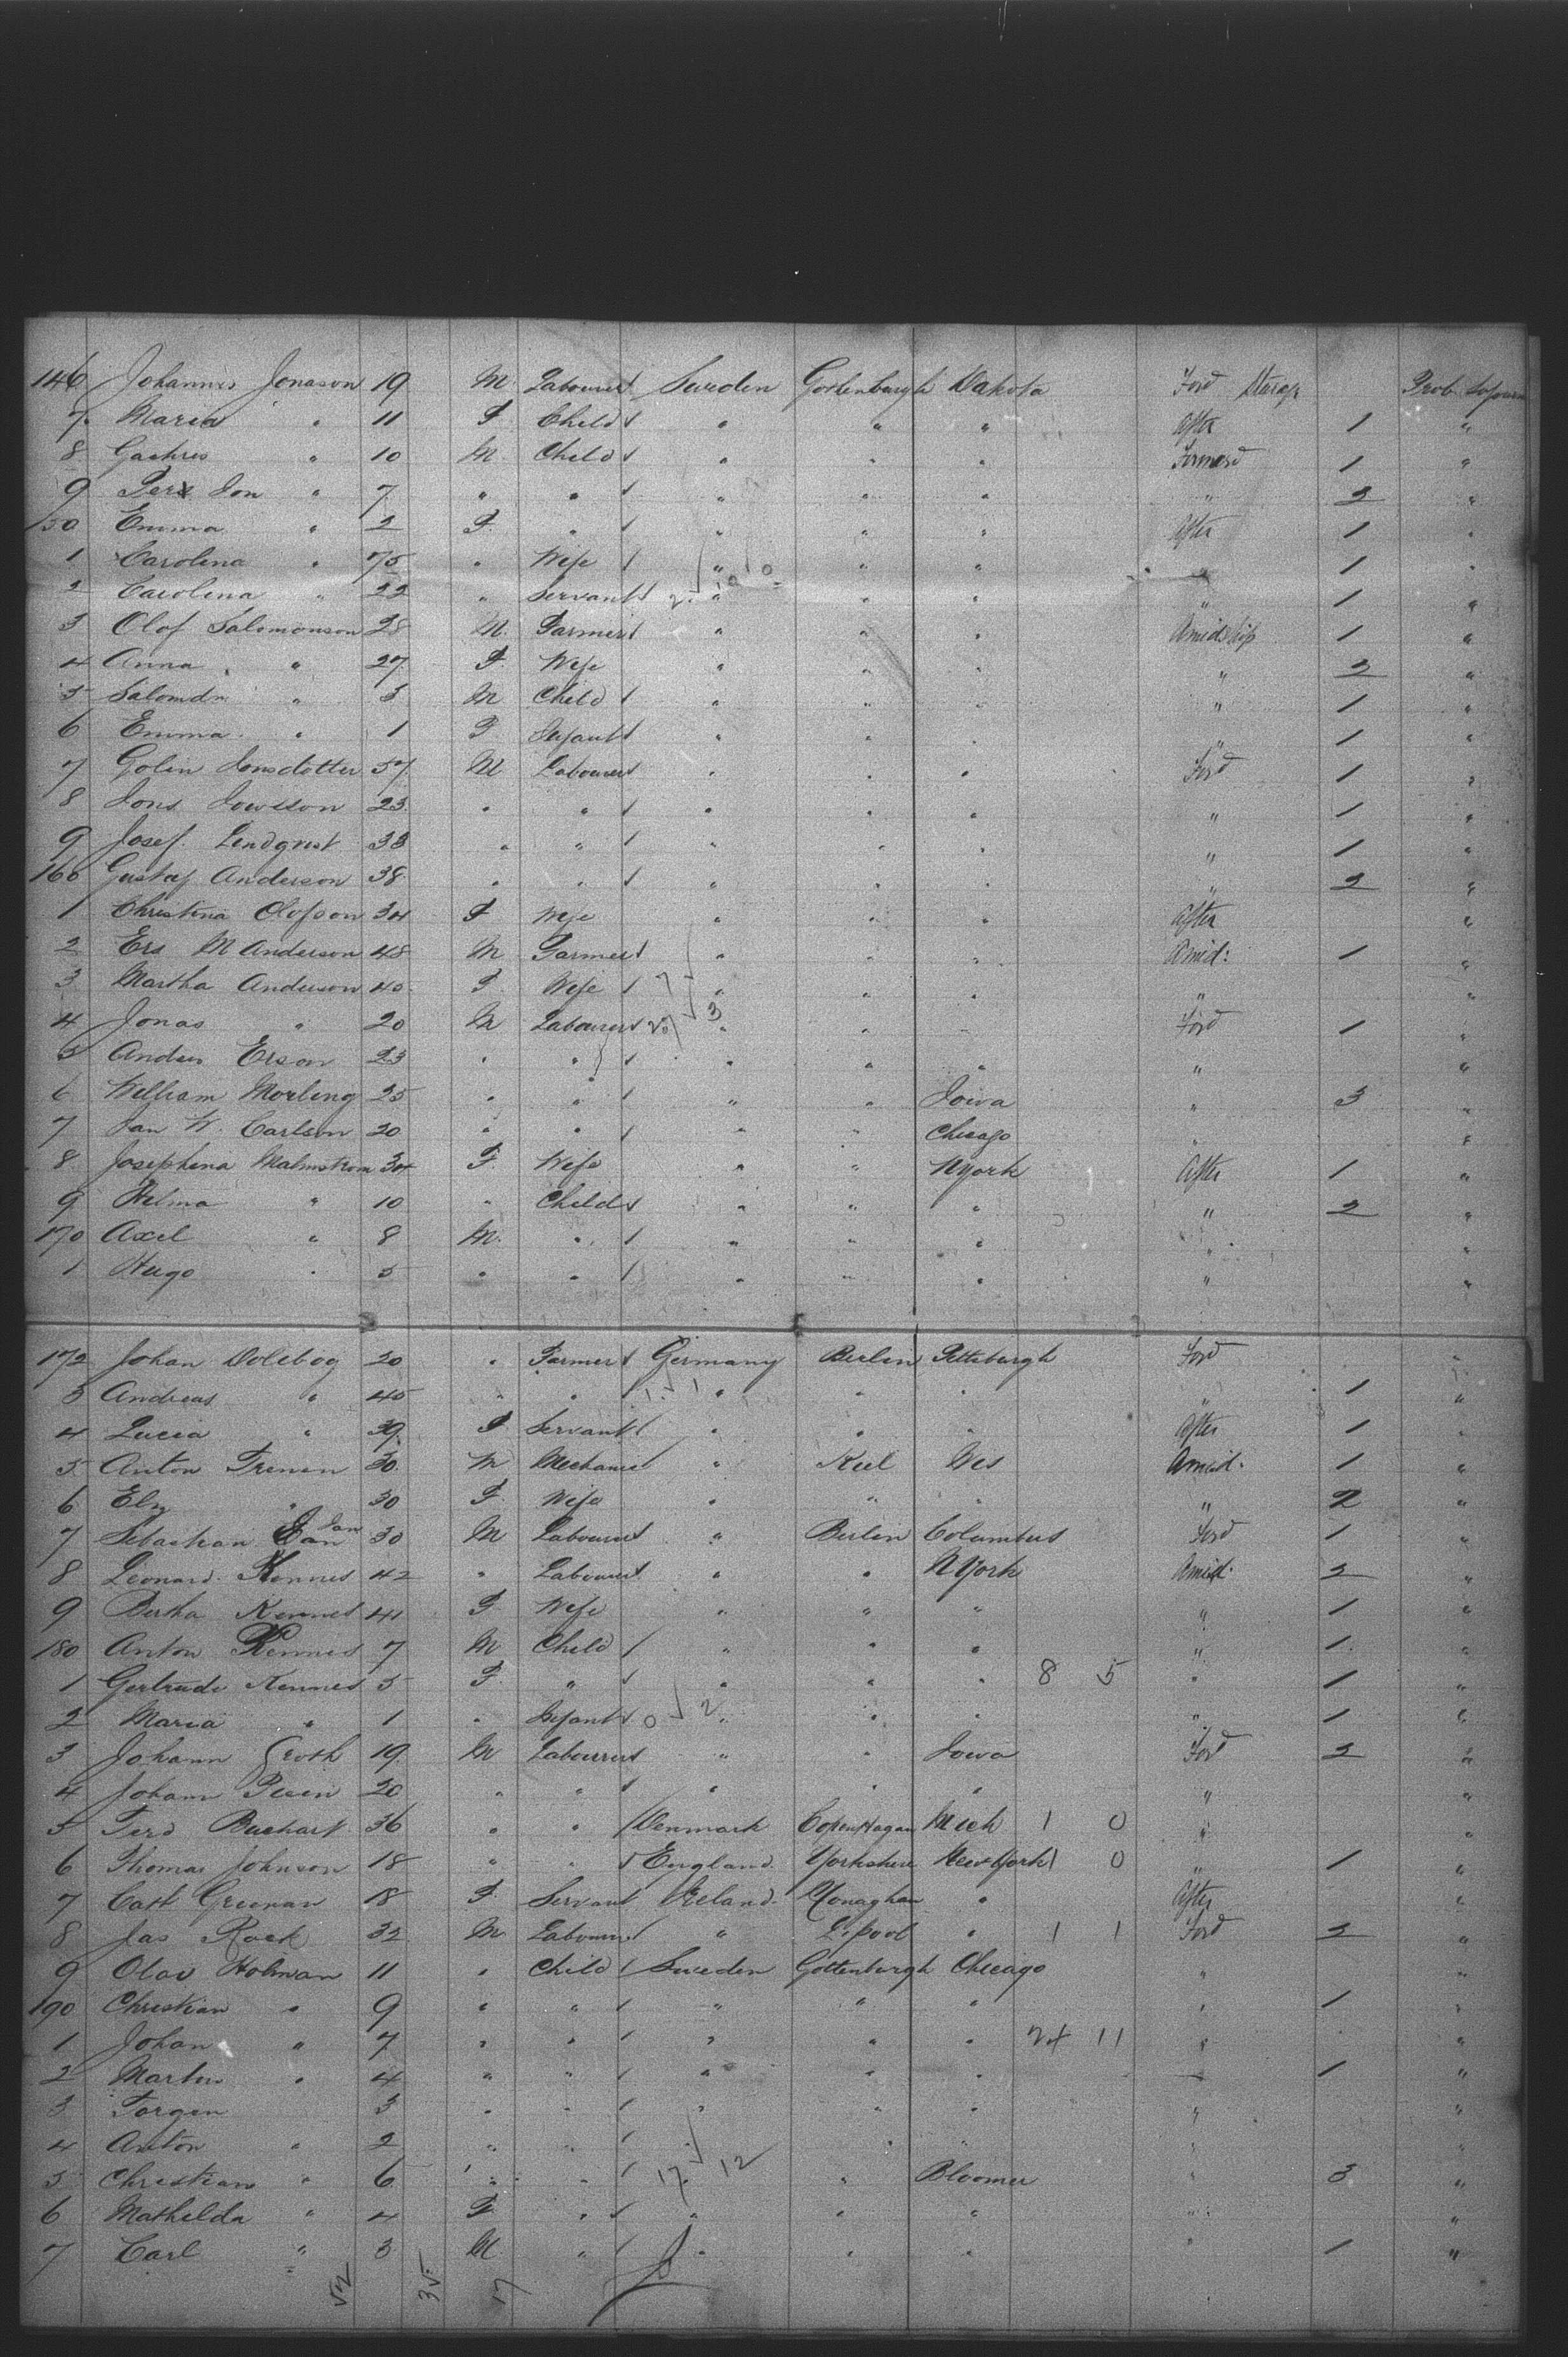 146 Johannes Jonason 19 M Labourer Sweden Gothenburgh Dakota Ford Steerage Prob. Sojourn
7 Maria " 11 F Child " " " After 1 "
8 " 10 M Child " " " Forward 1 "
9 Per Jon " 7 " " " " " " 2 "
150 Emma " 2 F " " " " After 1 "
1 Carolina " 75 " Wife " " " " 1 "
2 Carolina " 22 " Servant " " " " 1 "
3 Olof Salomonson 28 M Farmer " " " Amidship 1 "
4 Anna " 27 F Wife " " " " 2 "
5 Salomon " 3 M Child " " " " 1 "
6 Emma " 1 F Infant " " " " 1 "
7 Golin Jonsdotter 57 M Labourer " " " Ford 1 "
8 Jons 23 " " " " " " 1 "
9 Josef Lindqvist 33 " " " " " " 1 "
160 Gustaf Anderson 38 " " " " " " 2 "
1 Christina Olofson 34 F Wife " " " After "
2 Ers M Anderson 48 M Farmer " " " Amid: 1 "
3 Martha Anderson 45 F Wife " " " " "
4 Jonas " 20 M Labourer " " " Ford 1 "
5 Anders Erson 23 " " " " " " "
6 William Morling 25 " " " " Iowa " 3 "
7 Jan W. Carlson 20 " " " " Chicago " "
8 Josephina Malmstrom 34 F Wife " " N York After 1 "
9 Helma " 10 " Child " " " " 2 "
170 Axel " 8 M " " " " " "
1 Hugo " 5 " " " " " " "
172 Johan Dolebog 20 " Farmer Germany Berlin Pittsburgh Ford "
3 Andreas " 45 " " " " " " 1 "
4 Lucia " 39 F Servant " " " After 1 "
5 Anton Trenen 30 M Mechanic " Kiel Wis Amid. 1 "
6 Elz " 30 F Wife " " " " 2 "
7 Sebastian Jan 30 M Labourer " Berlin Columbus Ford 1 "
8 Leonard Kennes 42 " Labourer " " N York Amid. 2 "
9 Bertha Kennes 41 F Wife " " " " 1 "
180 Anton Kennes 7 M Child " " " " 1 "
1 Gertrude Kennes 5 F " " " " 8 5 " 1 "
2 Maria " 1 " Infant 0 2 " " " " 1 "
3 Johann Groth 19 M Labourer " " Iowa Ford 2 "
4 Johann 20 " " " " " " "
5 Ferd Buchart 36 " " Denmark Copenhagen Mich 1 0 " "
6 Thomas Johnson 18 " " England Yorkshire New York 1 0 " 1 "
7 Cath Greenan 18 F Servant Ireland Monaghan " After "
8 Jas Rock 32 M Labourer " L.pool " 1 1 Ford 2 "
9 Olav Holman 11 " Child Sweden Gottenburgh Chicago " "
190 Christian " 9 " " " " " " 1 "
1 Johan " 7 " " " " " 24 11 " "
2 Martin " 4 " " " " " " 1 "
3 Torgen 3 " " " " " " "
4 Anton " 2 " " " " " " "
5 Christian " 6 " " 17 12 " Bloomer " 3 "
6 Mathilda " 4 F " " " " " "
7 Carl " 3 M " " " " " 1 "
52 35 17